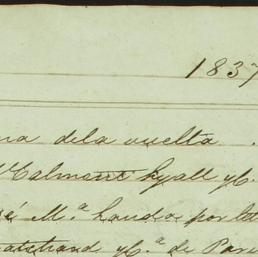 1837
ma dela vuelta .
Calmont Lyall yC.
sé M.ª Landra por let
yC.ª de Pari